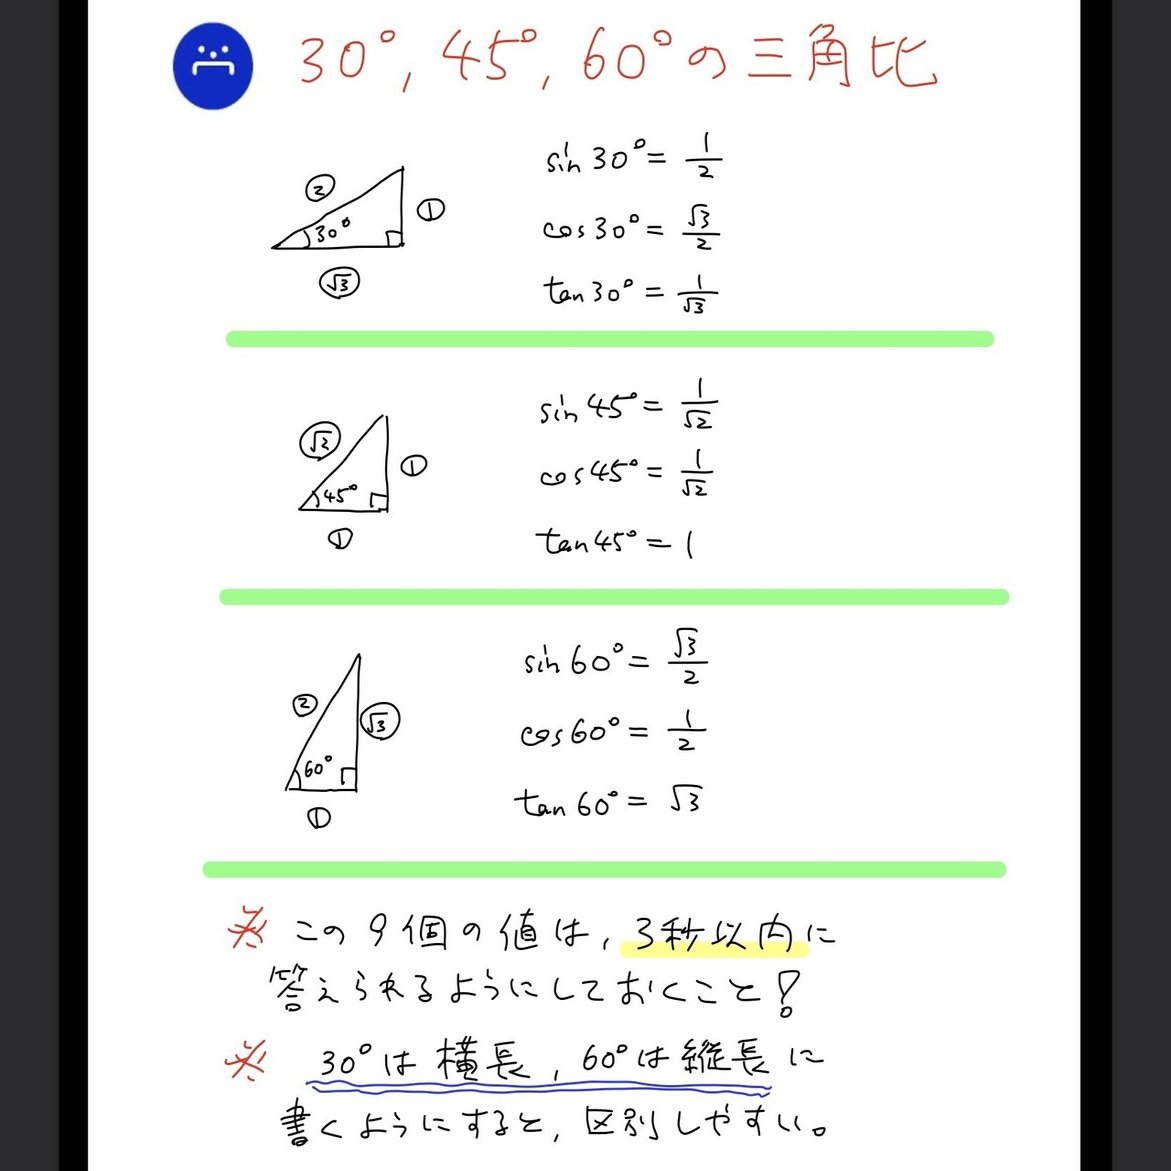 30°, 45°, 60°の三角比
② ① 30° √3
sin30°= 1/2
cos30°= √3/2
tan30°= 1/√3
√2 ① 45° ①
sin45°= 1/√2
cos45°= 1/√2
tan45°= 1
② √3 60° ①
sin60°= √3/2
cos60°= 1/2
tan60°= √3
※ この9個の値は, 3秒以内に
答えられるようにしておくこと!
※ 30°は横長, 60°は縦長に
書くようにすると, 区別しやすい。